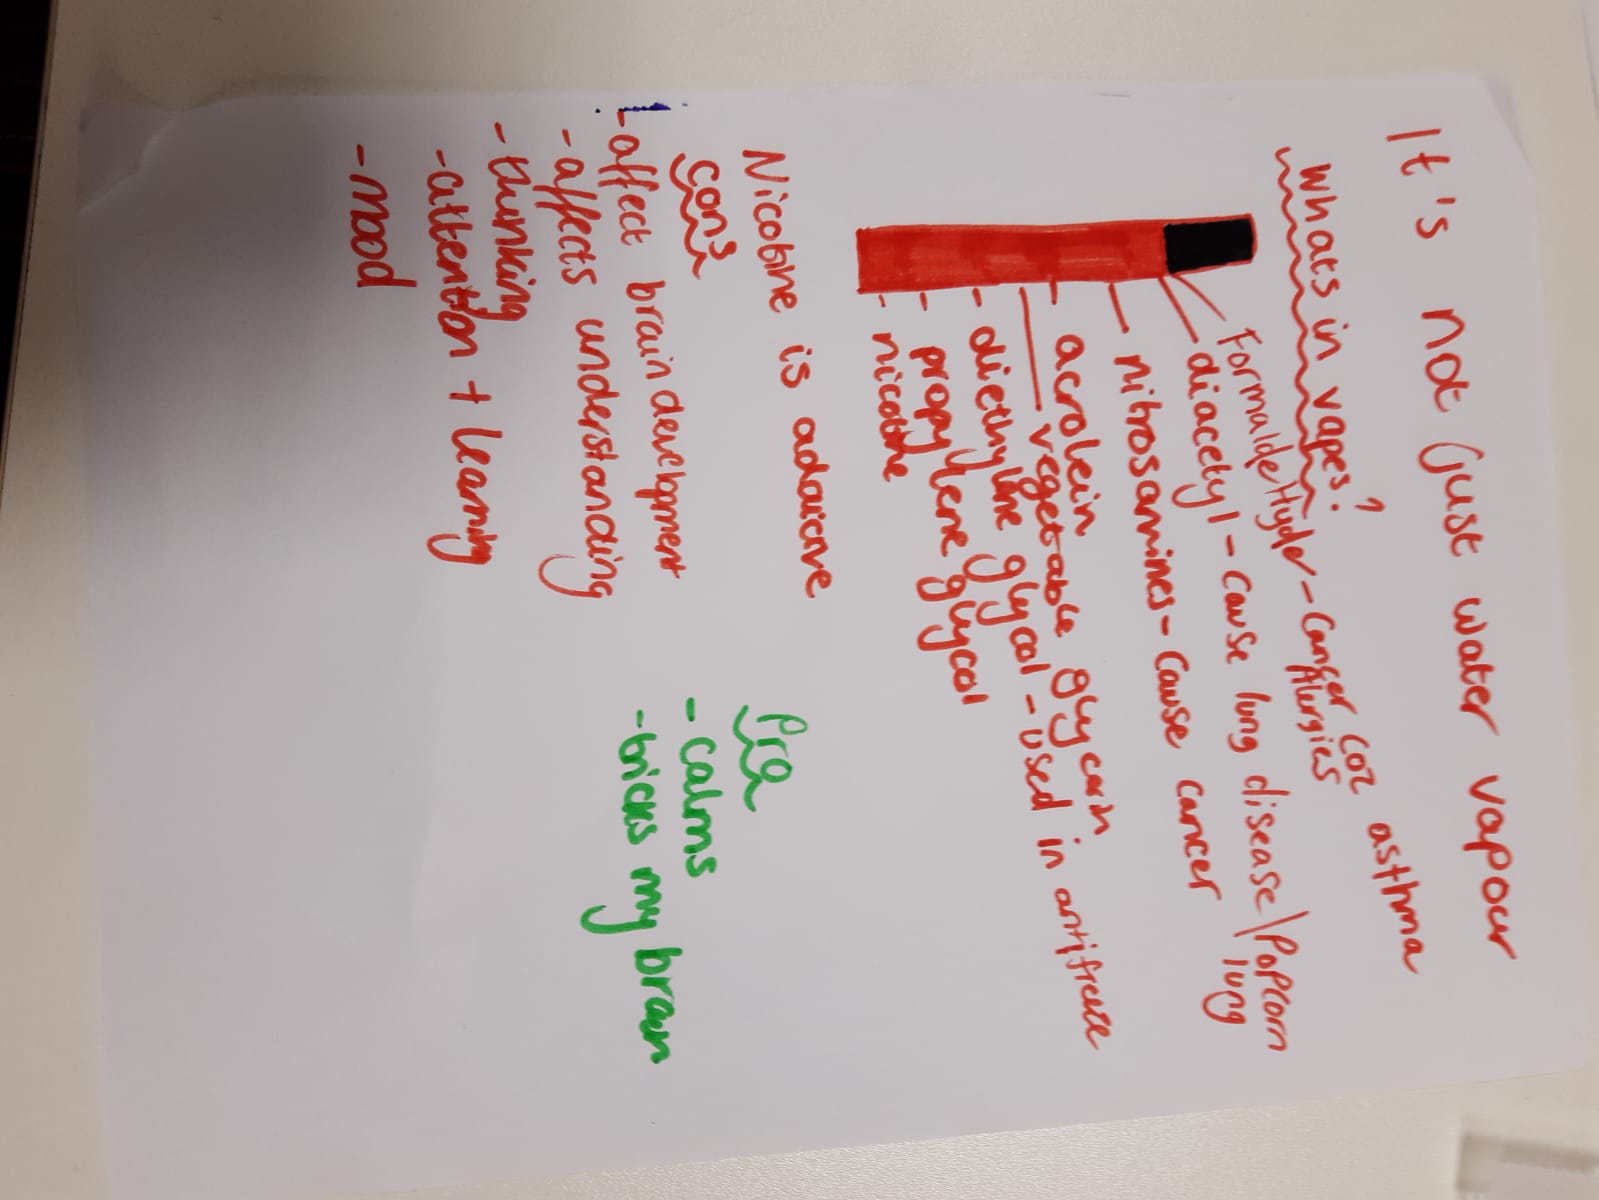 It's not just water vapour
Whats in vapes?
Formalde Hyder - Cancer CO2 asthma
Alurgies
diacetyl - cause lung disease \ Popcorn
lung
nitrosamines - cause cancer
acrolein
vegetable glycerin
diethyline glycol - used in antifreeze
propylene glycol
nicotine
Nicotine is addictive
con's
- affect brain development
- affects understanding
- thinking
- attention + learning
- mood
Pro
- calms
- bricks my brain